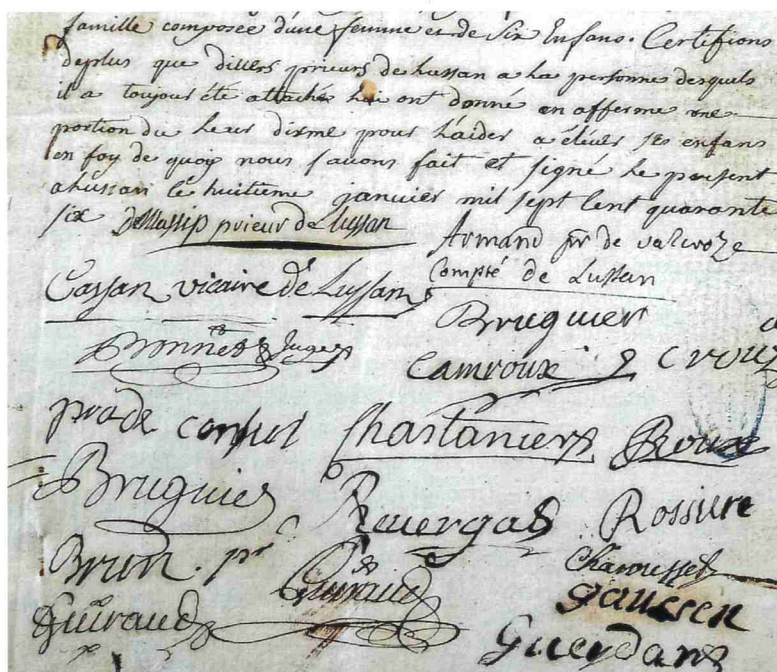 famille composée d'une femme et de six Enfans. Certifions
deplus que divers prieurs de Lussan a la personne desquels
il a toujour été attaché lui ont donné en afferme une
portion du leur disme pour l'aider a élever ses enfans
en foy de quoy nous l'avons fait et signé le present
a Lussan le huitieme janvier mil sept cent quarante
six Demassip prieur de Lussan
Armand pr de valcroze
Compté de Lussan
Cassan vicaire de Lussan
Bruguier
Bonnet Juge
Camroux
Crouz
prade consul Chastanier Roux
Bruguier Rouergas Rossiere
Brun. pr Guiraud Charousset
Gaussen
Guiraud
Gueydan